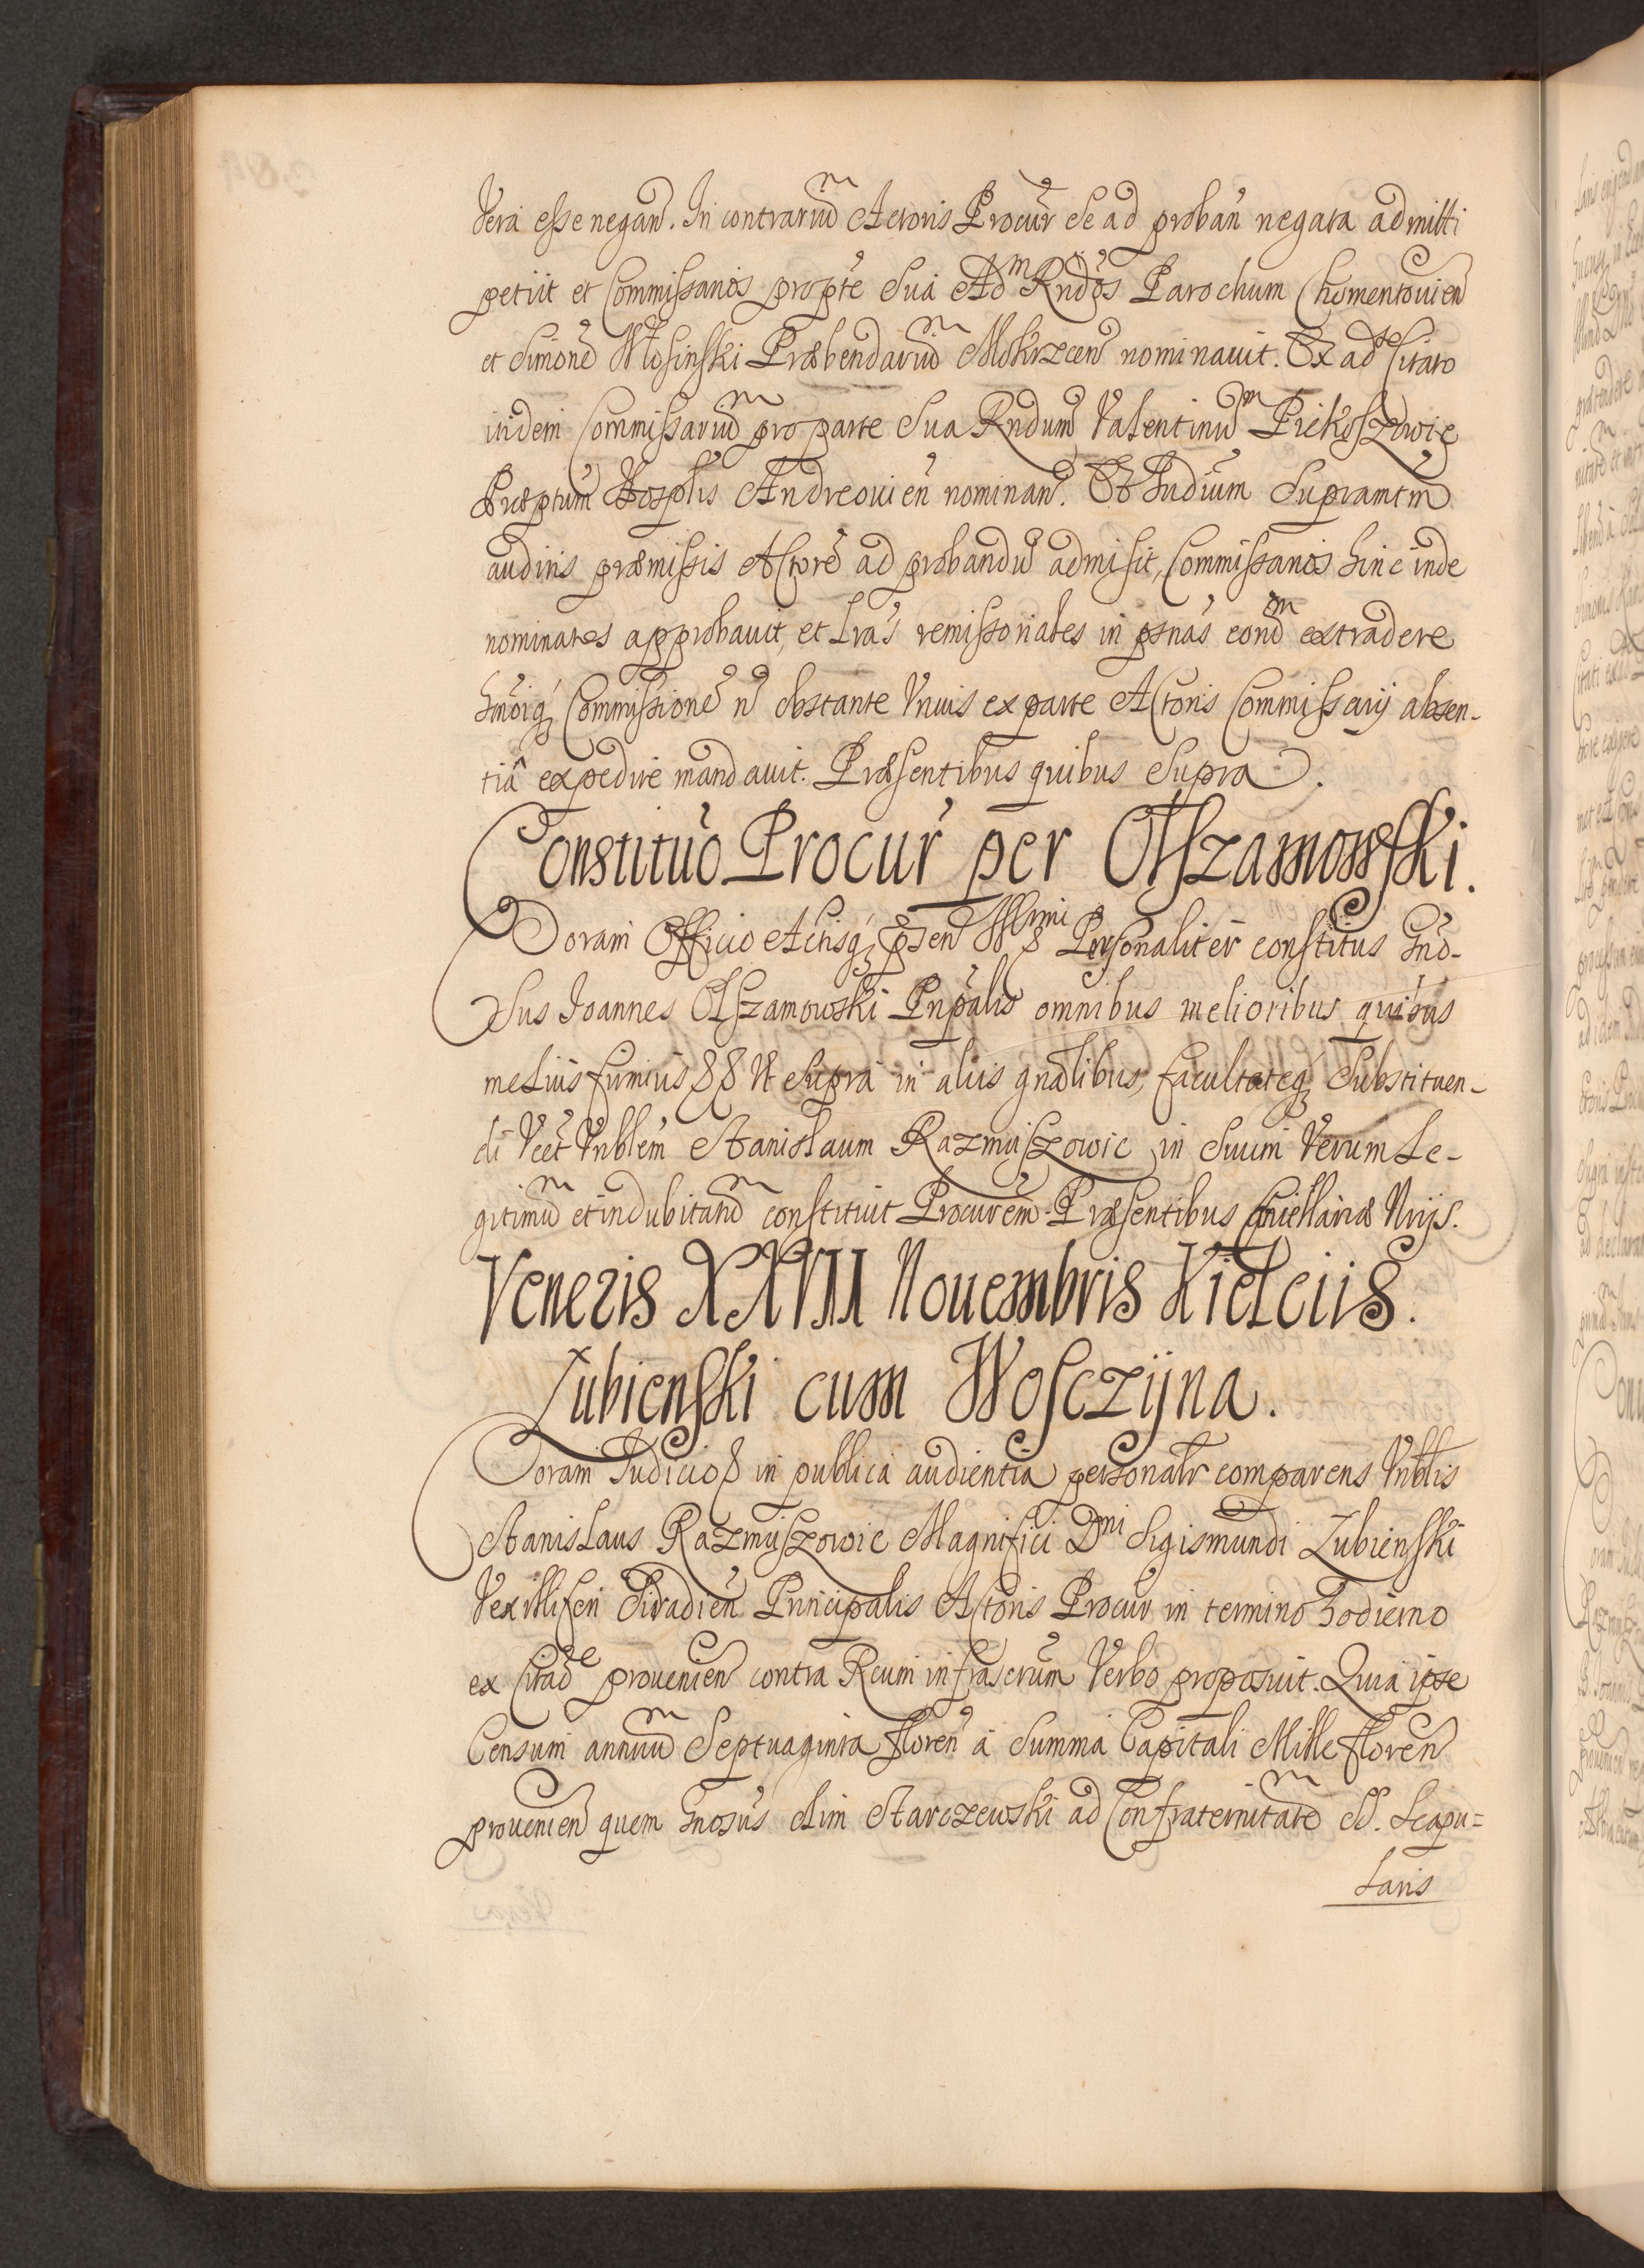 Vera esse negan. In contrariũ Actoris Procur se ad proban negata admitti
petiit et Commissarios pro pte sua Adm Rndos Parochum Chomentovien
et Simonẽ Włosinski Præbendariũ Mokrzcen nominavit. Ex adso Citato
itidem Commissariũ pro parte sua Rndum Valentinũ Piekoszowic
Præptum Hosplis Andreovien nominan. Et Iudium Supramtm
auditis præmissis Actorẽ ad probandũ admisit, Commissarios hinc inde
nominatos approbavit, et Lras remissoriales in psnas eond extradere
hmoiq Commissionẽ n obstante Unius ex parte Actoris Commissarij absen-
tiâ expedire mandavit. Præsentibus quibus Supra.
Constituo Procur per Olszamowski.
Coram Officio Actisq psen Illmi Personaliter constitus Gno-
sus Joannes Olszamowski Pnpalis omnibus melioribus quibus
melius firmius Ut supra in aliis gnalibus, facultateq Substituen-
di Vcet Vnblem Stanislaum Razmuszowic in Suum Verum Le-
gitimũ et indubitatũ constituit Procurem. Præsentibus Cniellariæ Nrijs.
Veneris XXVIII Nouembris Kielciis.
Łubienski cum Wosczijna.
Coram Judicio in publica audientia personalr comparens Vnblis
Stanislaus Razmuszowic Magnifici Dni Sigismundi Łubienski
Vexilliferi Siradien Principalis Actoris Procur in termino hodierno
ex Citaone provenien contra Reum infrascrum Verbo proposuit. Quia ipse
Censum annuũ Septuaginta floren a Summa Capitali Mille floren
provenien quem Gnosus olim Starczewski ad Confraternitatẽ SS. Scapu=
laris